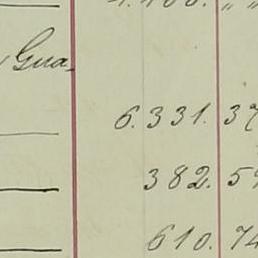 Gua-
6.331. 37
382. 5
610. 74